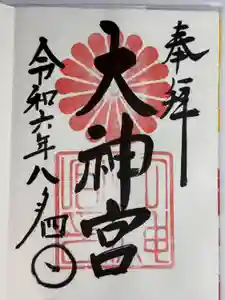 奉拝
大神宮
令和六年八月四日